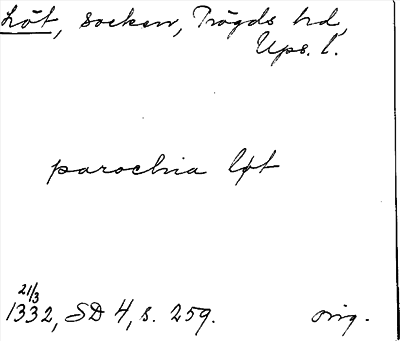 Löt, socken, Trögds hd,
Ups. l.
parochia løt
21/3
1332, SD 4, s. 259. orig.